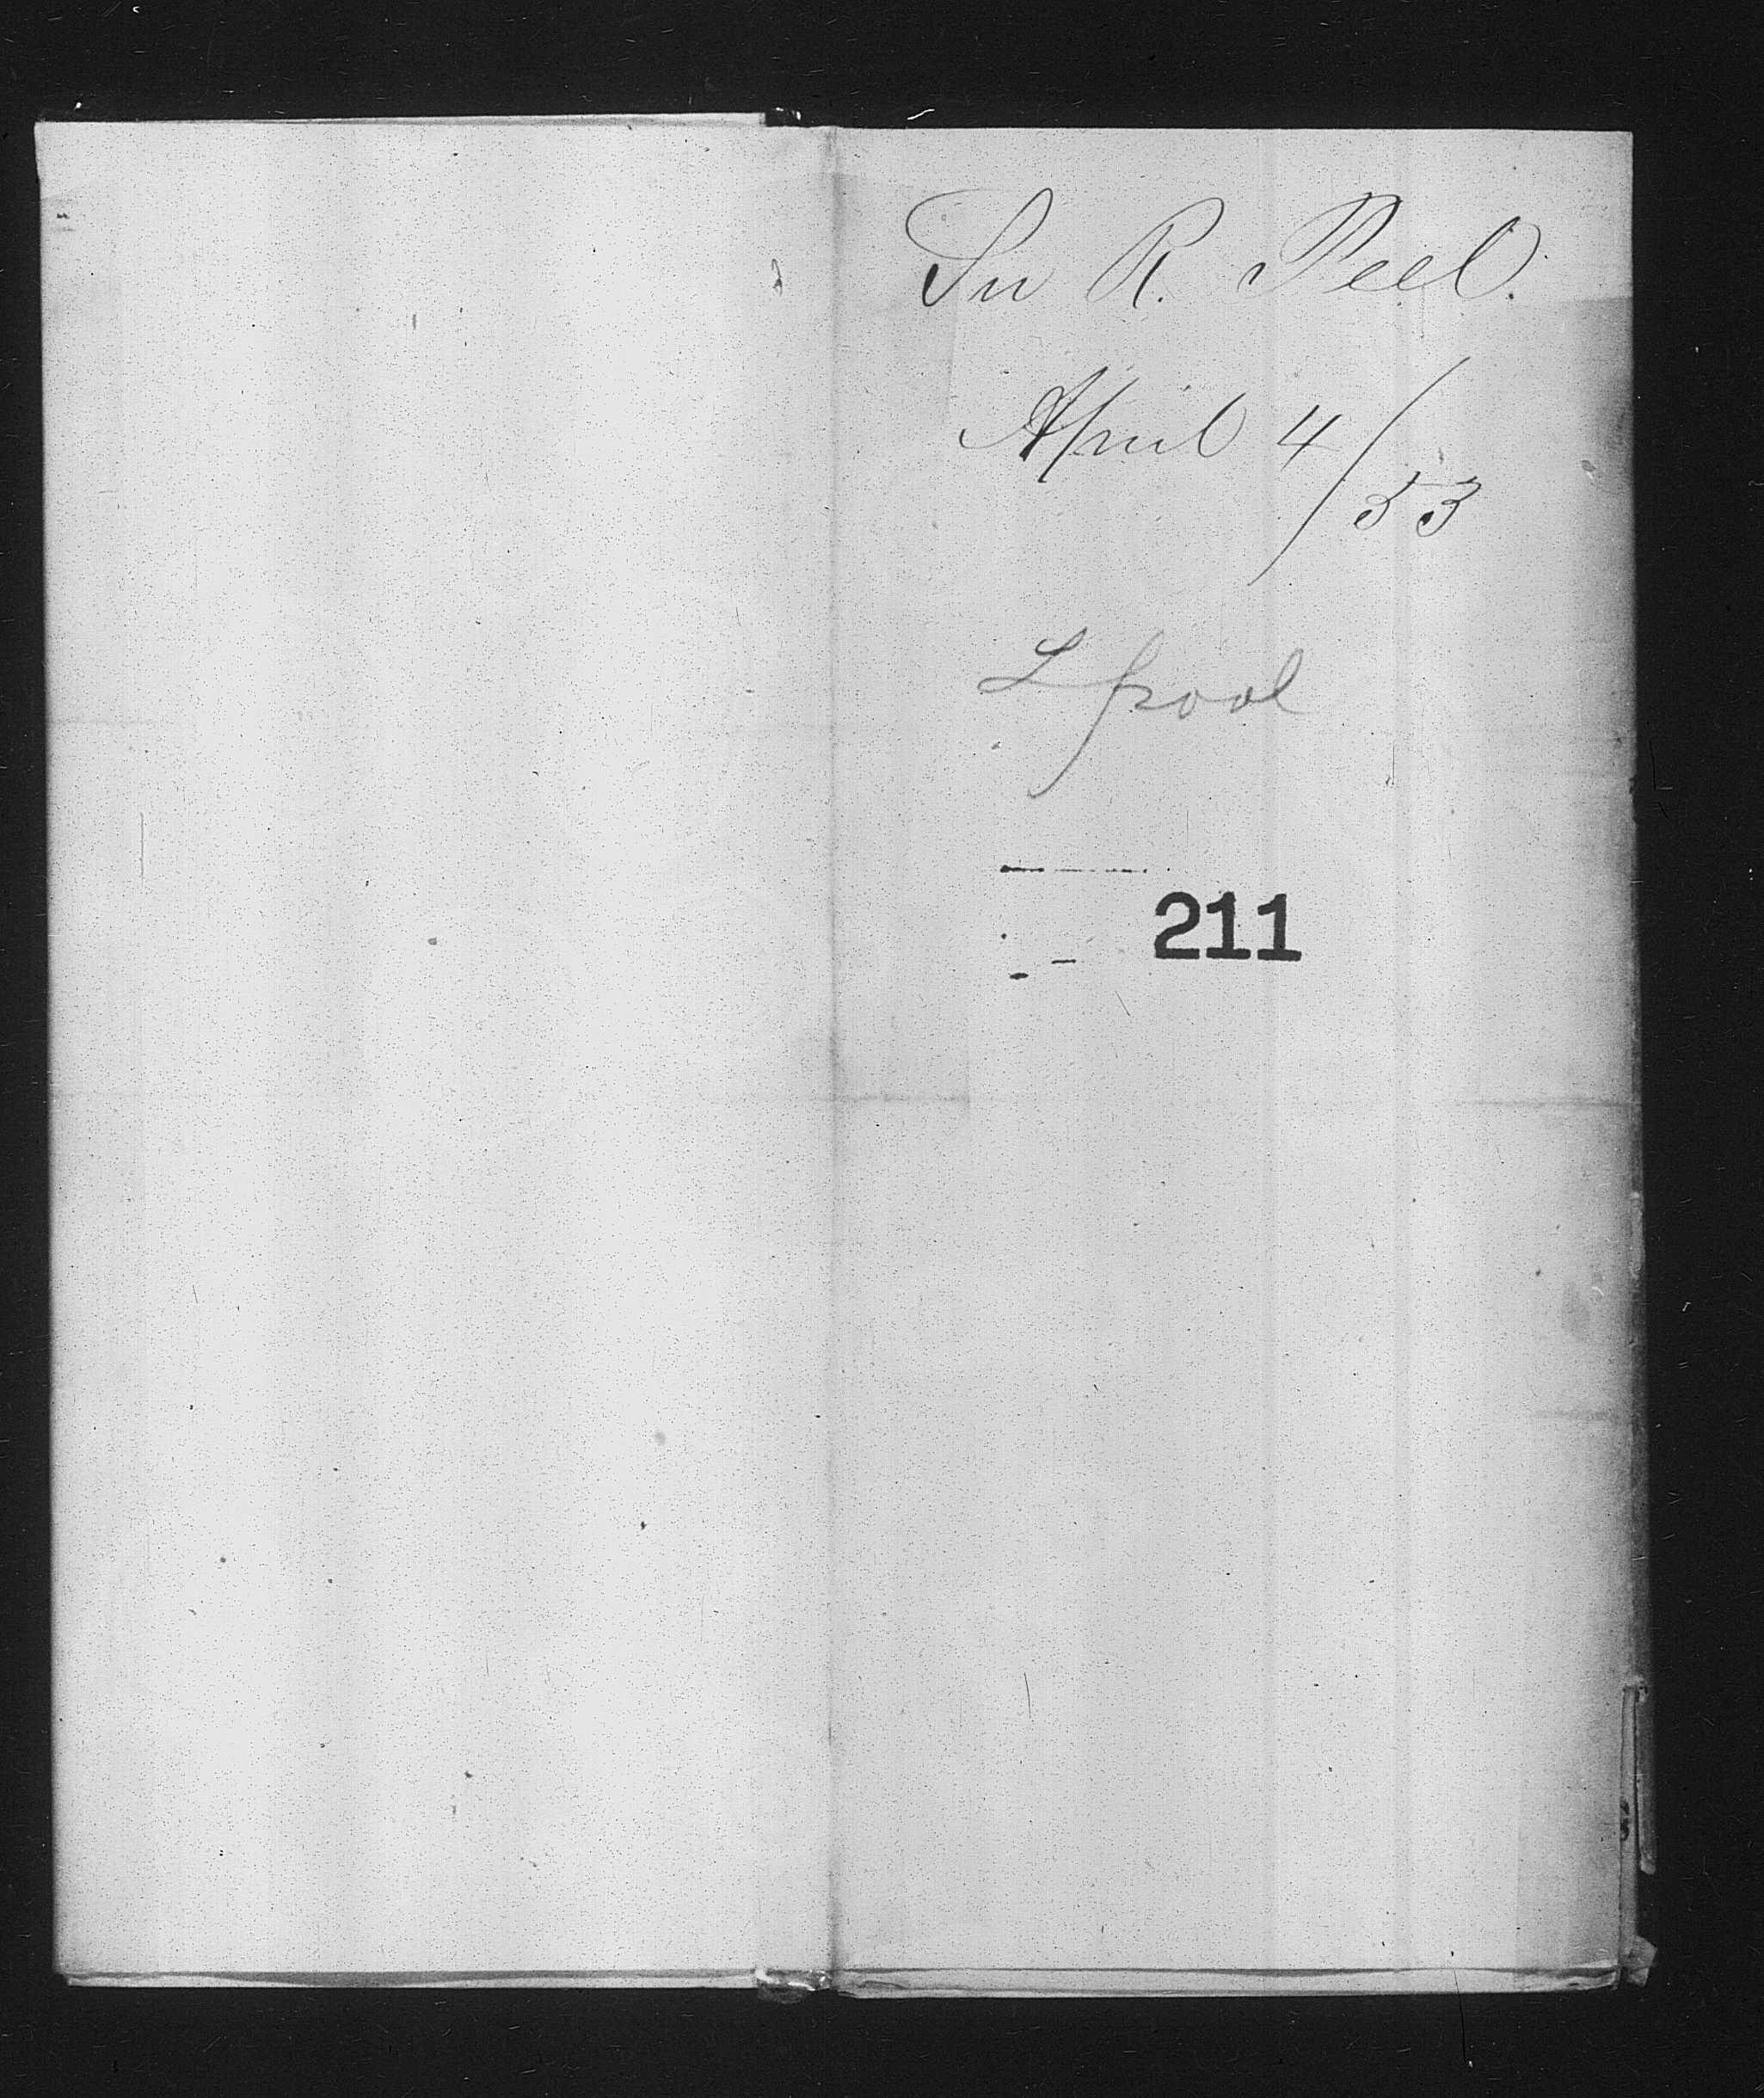 Sir R. Peel.
April 4/53
L pool
211